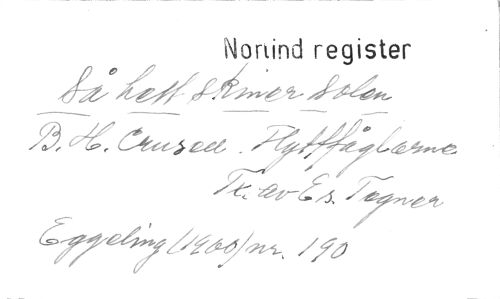 Norlind register
Så hett skiner solen
B. H. Crusell. Flyttfåglarne
Tx. av Es. Tegner
Eggeling (1960) nr. 190